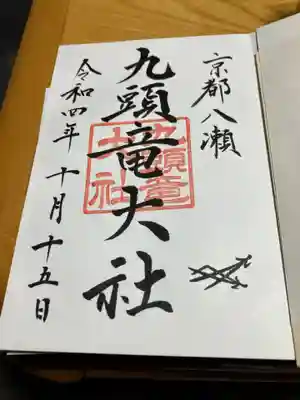 京都八瀬
九頭竜大社
九頭竜大社
令和四年十月十五日